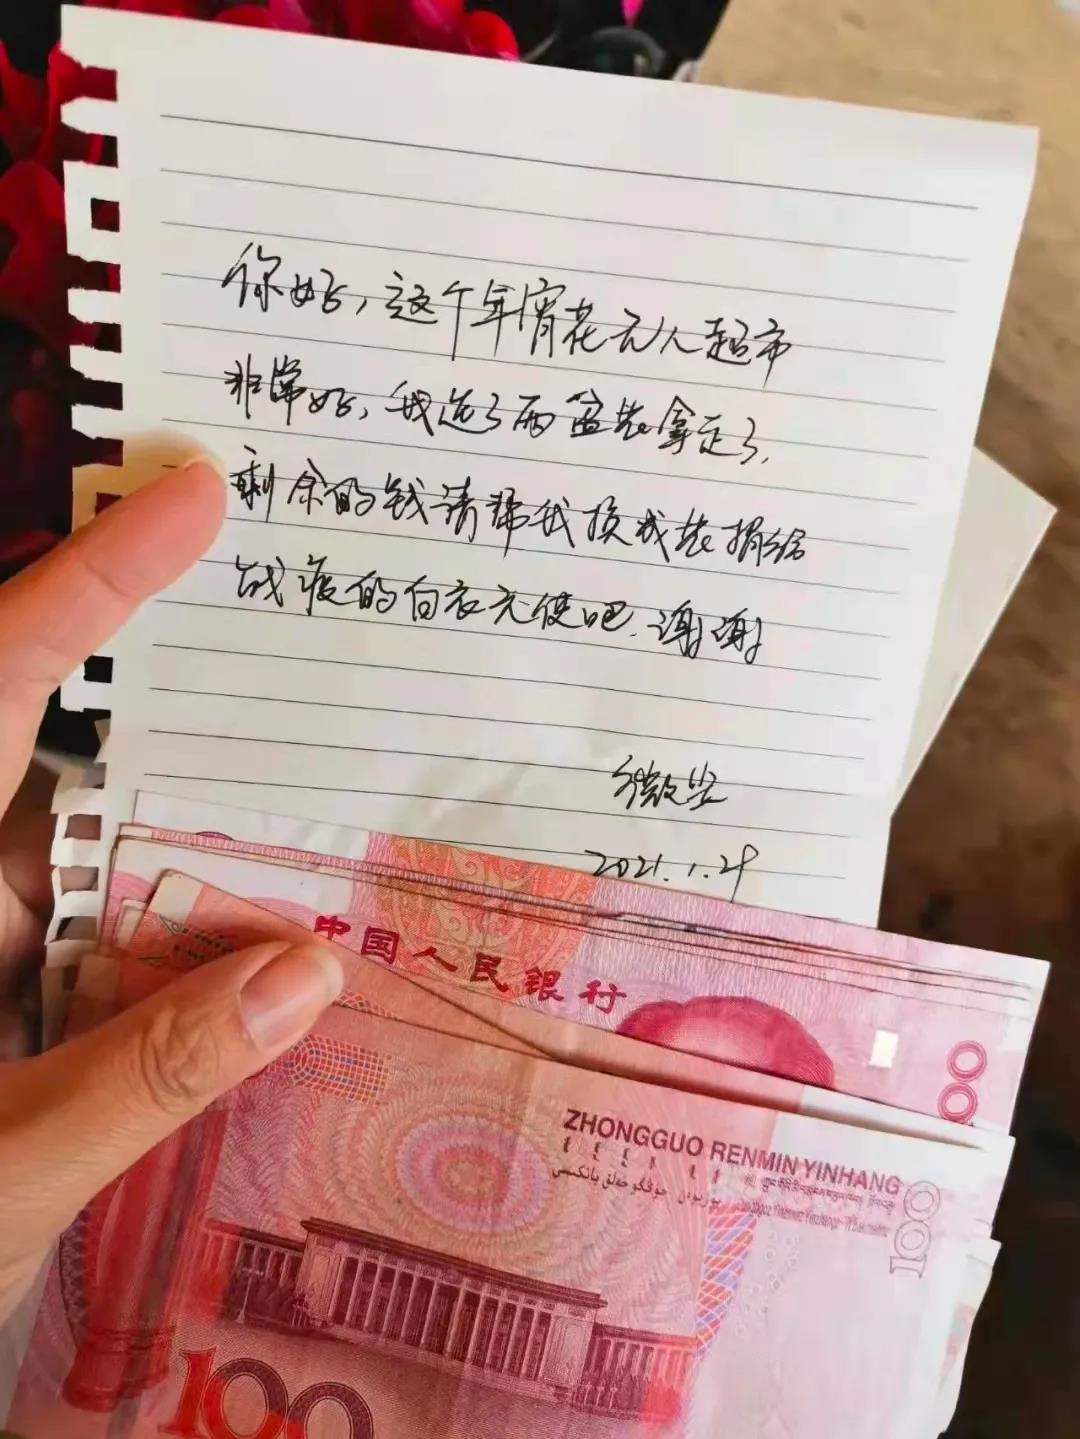 你好,这个年宵花无人超市
非常好,我选了两盆花拿走了.
剩余的钱请帮我换成花捐给
战疫的白衣天使吧.谢谢
2021.1.29
中国人民银行
100
ZHONGGUO RENMIN YINHANG
100
100